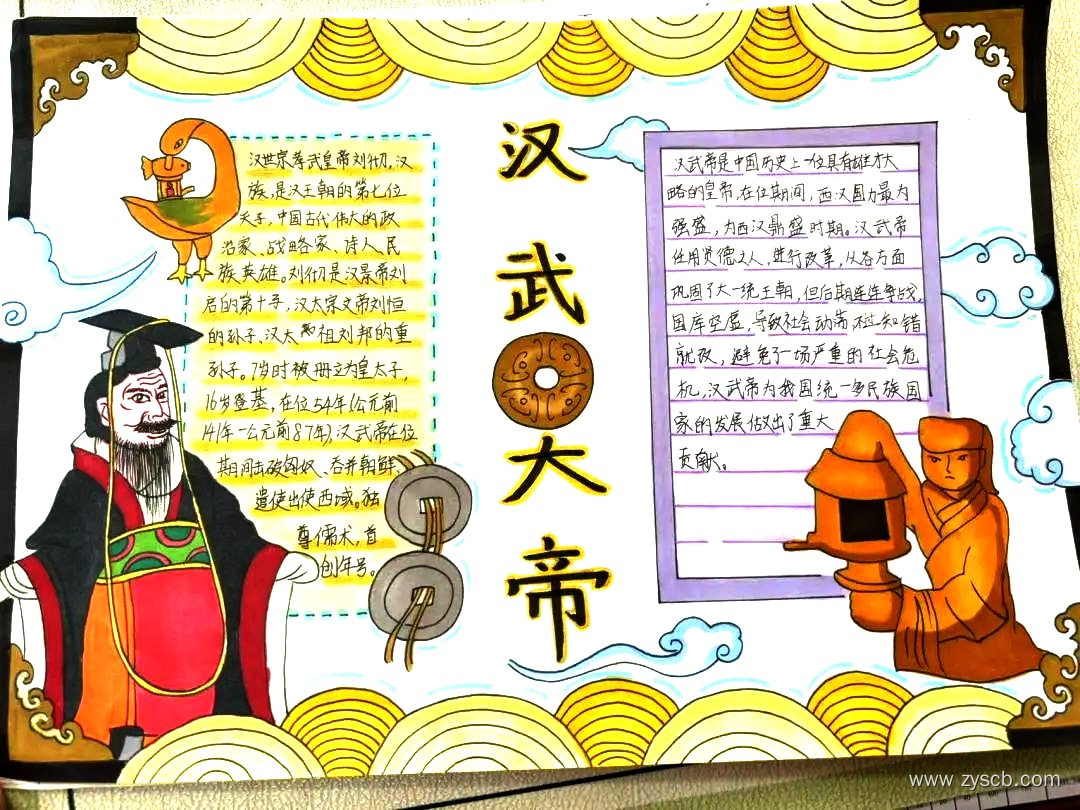 汉世宗孝武皇帝刘彻,汉
族,是汉王朝的第七位
天子,中国古代伟大的政
治家、战略各家、诗人民
族英雄。刘彻是汉景帝刘
启的第十子,汉太宗文帝刘恒
的孙子、汉太祖刘邦的重
孙子。7岁时被册立为皇太子,
16岁登基,在位54年(公元前
141年-公元前87年),汉武帝在位
期间击破匈奴、吞并朝鲜、
遣使出使西域。独
尊儒术,首
创年号。
汉
武
大
帝
汉武帝是中国历史上一位具有雄才大
略的皇帝,在位期间,西汉国力最为
强盛,为西汉鼎盛时期。汉武帝
任用贤德之人,进行改革,从各方面
巩固了大一统王朝,但后期连连争战,
国库空虚,导致社会动荡,不过知错
就改,避免了一场严重的社会危
机,汉武帝为我国统一多民族国
家的发展做出了重大
贡献。
www.zyscb.com